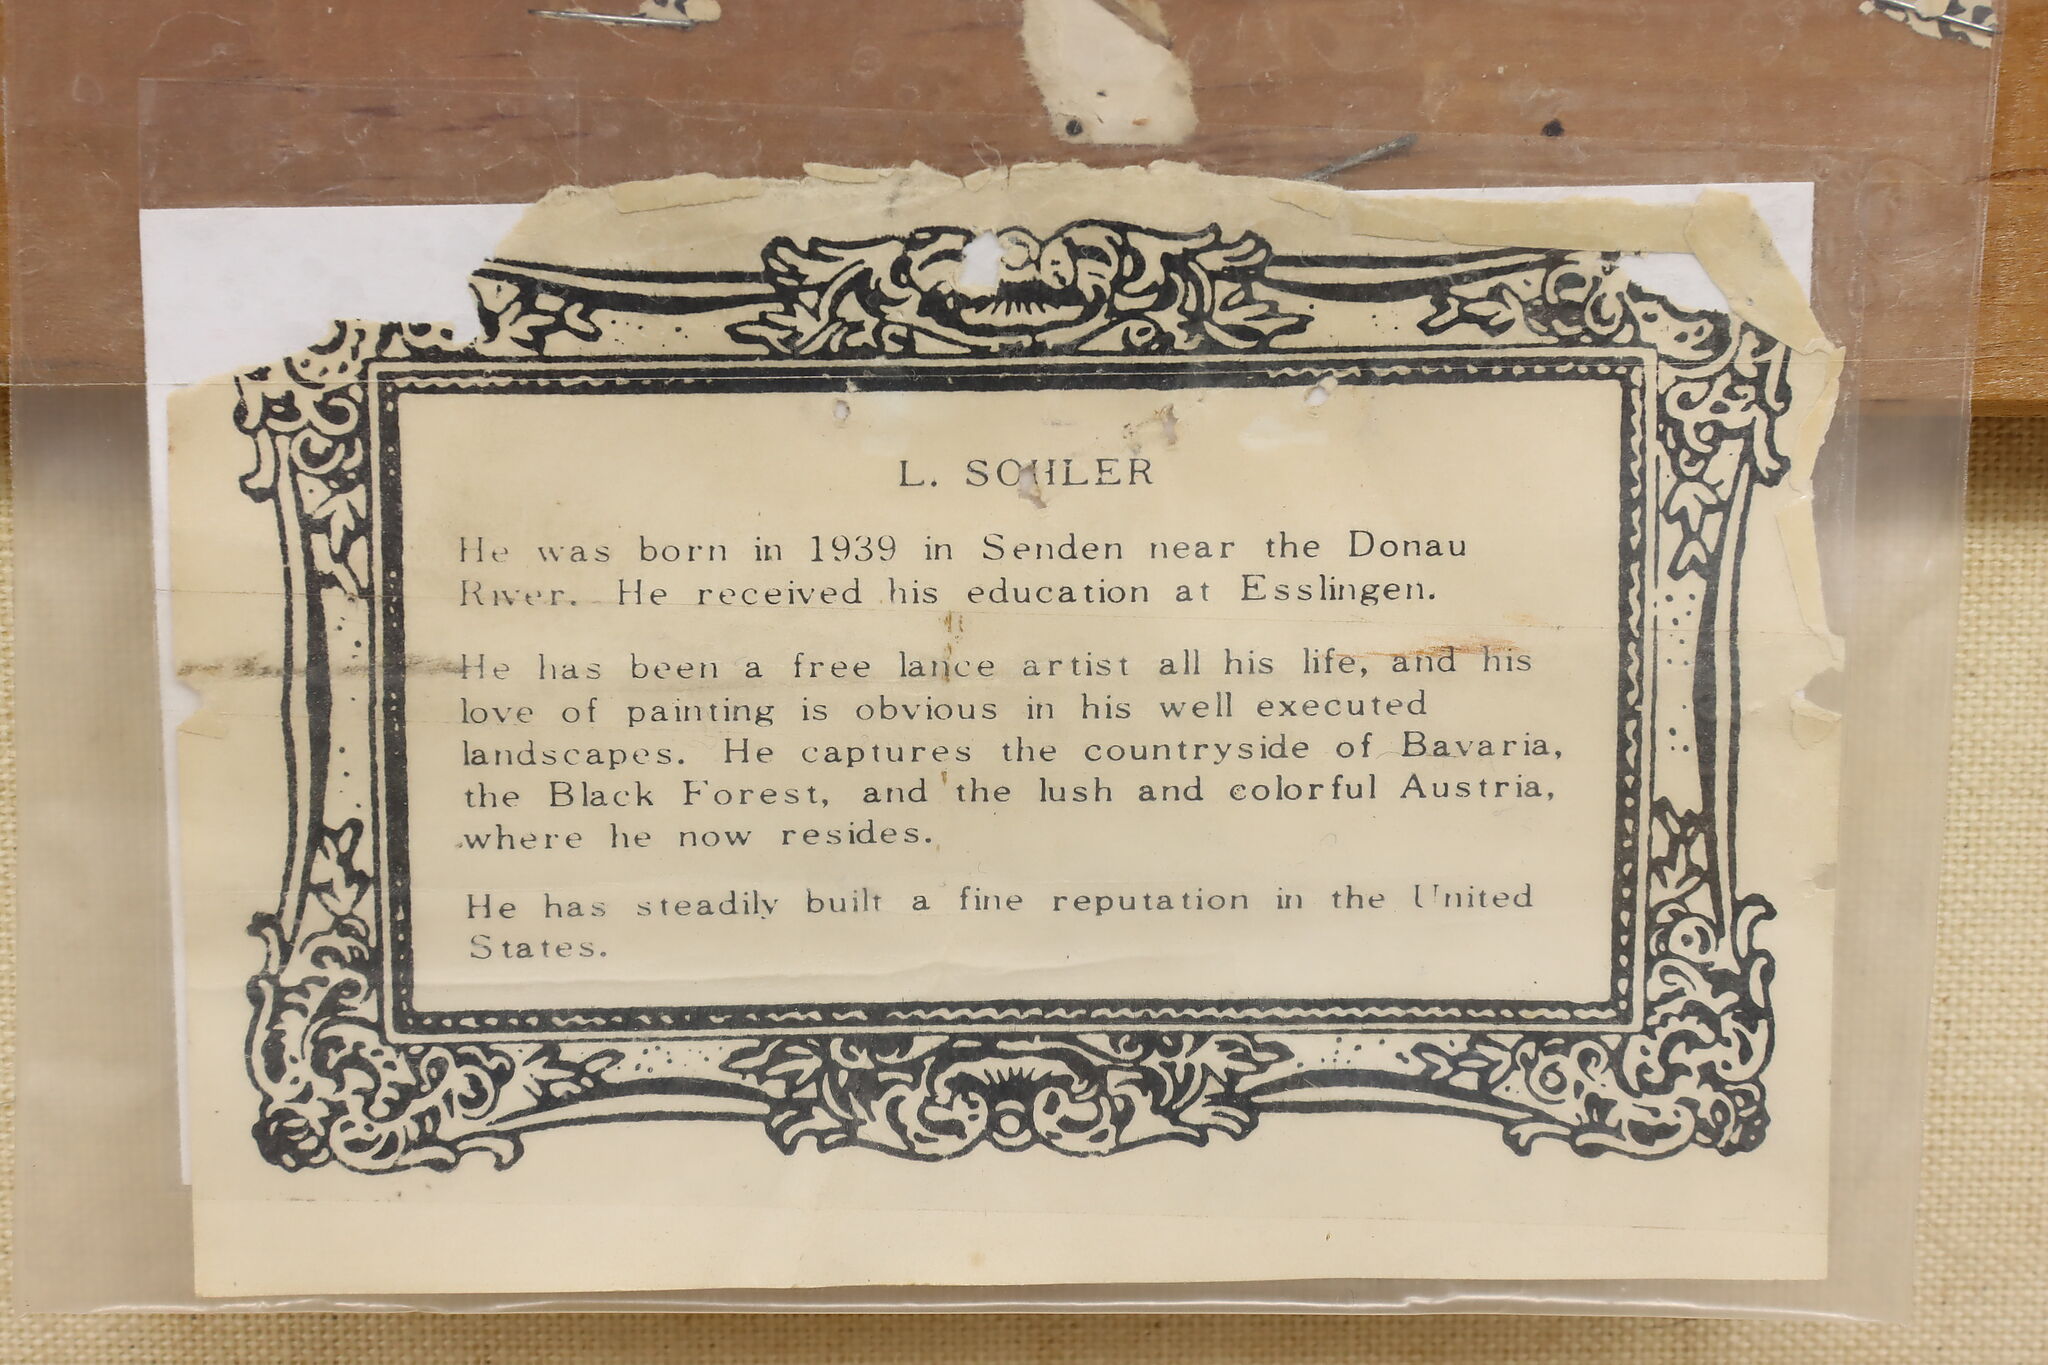 L. SOHLER
He was born in 1939 in Senden near the Donau
River. He received his education at Esslingen.
He has been a free lance artist all his life, and his
love of painting is obvious in his well executed
landscapes. He captures the countryside of Bavaria,
the Black Forest, and the lush and colorful Austria,
where he now resides.
He has steadily built a fine reputation in the United
States.